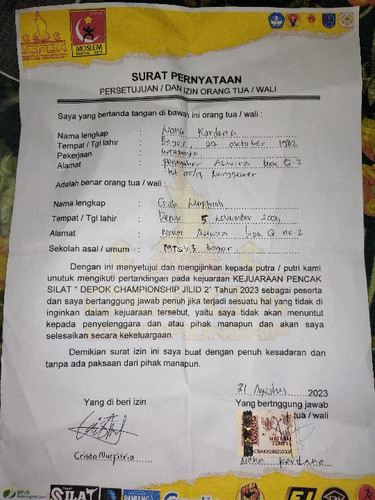 DEPOK
MOSLEM
SURAT PERNYATAAN
PERSETUJUAN / DAN IZIN ORANG TUA / WALI
Saya yang bertanda tangan di bawah ini orang tua / wali :
Nama lengkap : Nana Kardana
Tempat / Tgl lahir : Bogor, 27 oktober 1982
Pekerjaan :
Alamat :
Adalah benar orang tua / wali :
Nama lengkap :
Tempat / Tgl lahir : Depok 5 november 2009
Alamat : Q no-2
Sekolah asal / umum : MTs Bogor
Dengan ini menyetujui dan mengijinkan kepada putra / putri kami
unutuk mengikuti pertandingan pada kejuaraan KEJUARAAN PENCAK
SILAT " DEPOK CHAMPIONSHIP JILID 2" Tahun 2023 sebagai peserta
dan saya bertanggung jawab penuh jika terjadi sesuatu hal yang tidak di
inginkan dalam kejuaraan tersebut, yaitu saya tidak akan menuntut
kepada penyelenggara dan atau pihak manapun dan akan saya
selesaikan secara kekeluargaan.
Demikian surat izin ini saya buat dengan penuh kesadaran dan
tanpa ada paksaan dari pihak manapun.
31 Agustus 2023
Yang di beri izin
Yang bertnggung jawab
tua / wali
10000
TEMPEL
Crista Nurfitria
Nana Kardana
SILAT